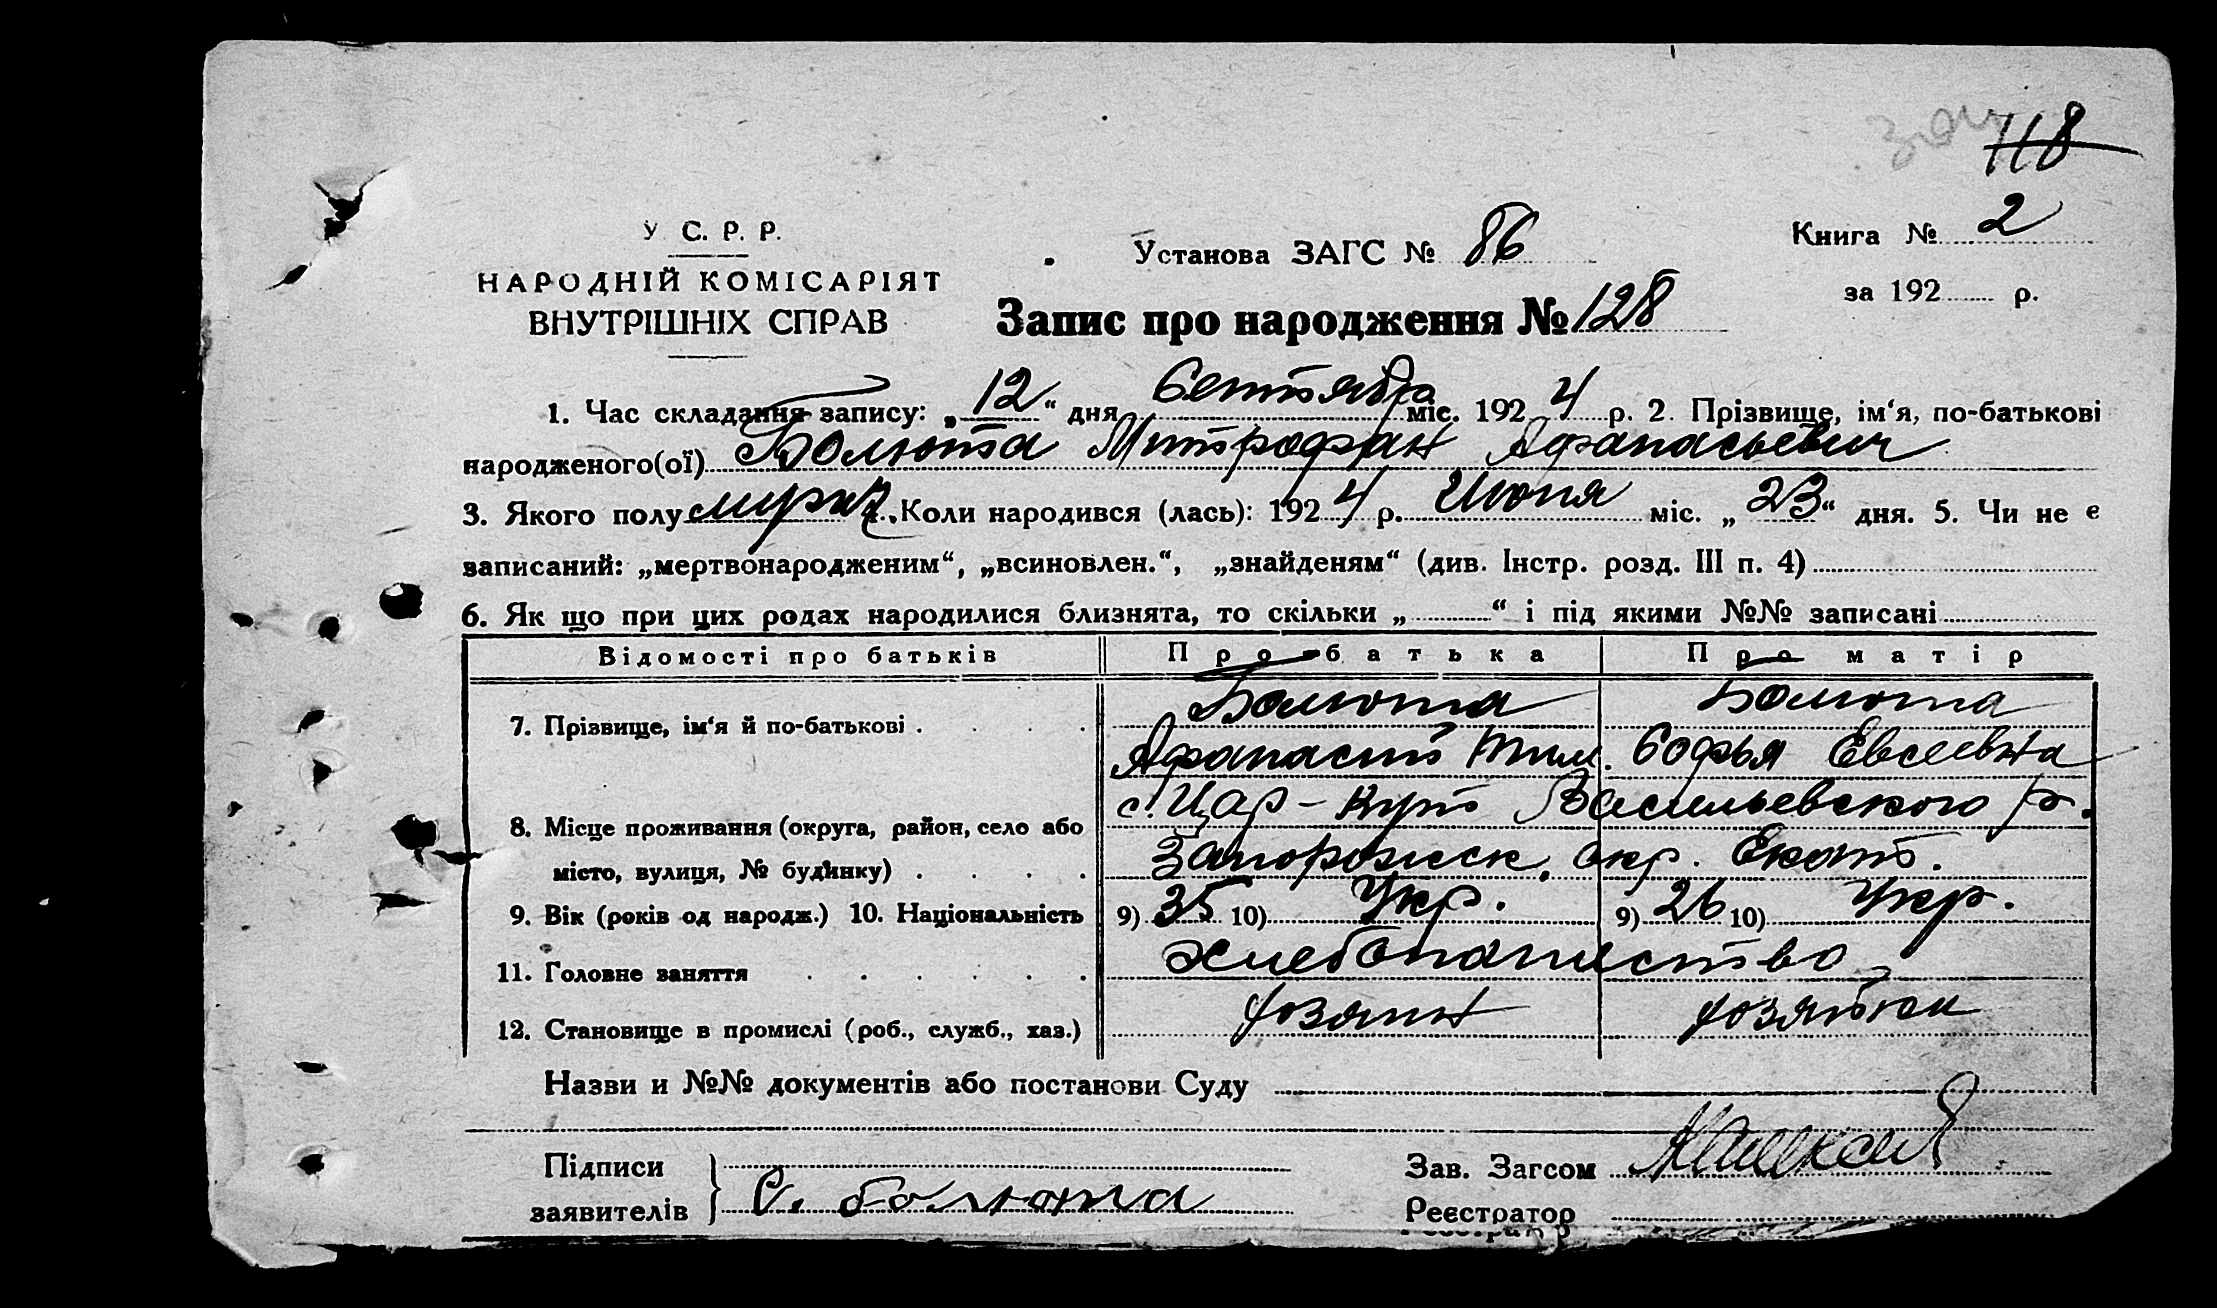 Зап
118
У. С. Р. Р.
НАРОДНІЙ КОМІСАРІЯТ
ВНУТРІШНІХ СПРАВ
Установа ЗАГС № 86
Книга № 2
за 192 р.
Запис про народження № 128
1. Час складання запису: „12“ дня Сентября міс. 1924 р. 2. Прізвище, ім‘я, по-батькові
народженого(ої) Болюта Митрофан Афанасьевич
3. Якого полу мужск. 4. Коли народився (лась): 1924 р. Июня міс. „23“ дня. 5. Чи не є
записаний: „мертвонародженим“, „всиновлен.“, „знайденям“ (див. Інстр. розд. III п. 4)
6. Як що при цих родах народилися близнята, то скільки „ “ і під якими №№ записані
Відомості про батьків Про батька Про матір
7. Прізвище, ім‘я й по-батькові Болюта Болюта
Афанасий Тим. Софья Евсеевна
с. Цар-Кут Васильевского р.
8. Місце проживання (округа, район, село або
місто, вулиця, № будинку) Запорожск. окр. Екат.
9. Вік (років од народж.) 10. Національність 9) 35 10) Укр. 9) 26 10) Укр.
11. Головне заняття хлебопашество
12. Становище в промислі (роб., служб., хаз.) хозяин хозяйка
Назви и №№ документів або постанови Суду
Підписи
заявителів С. болюта
Зав. Загсом
Реєстратор